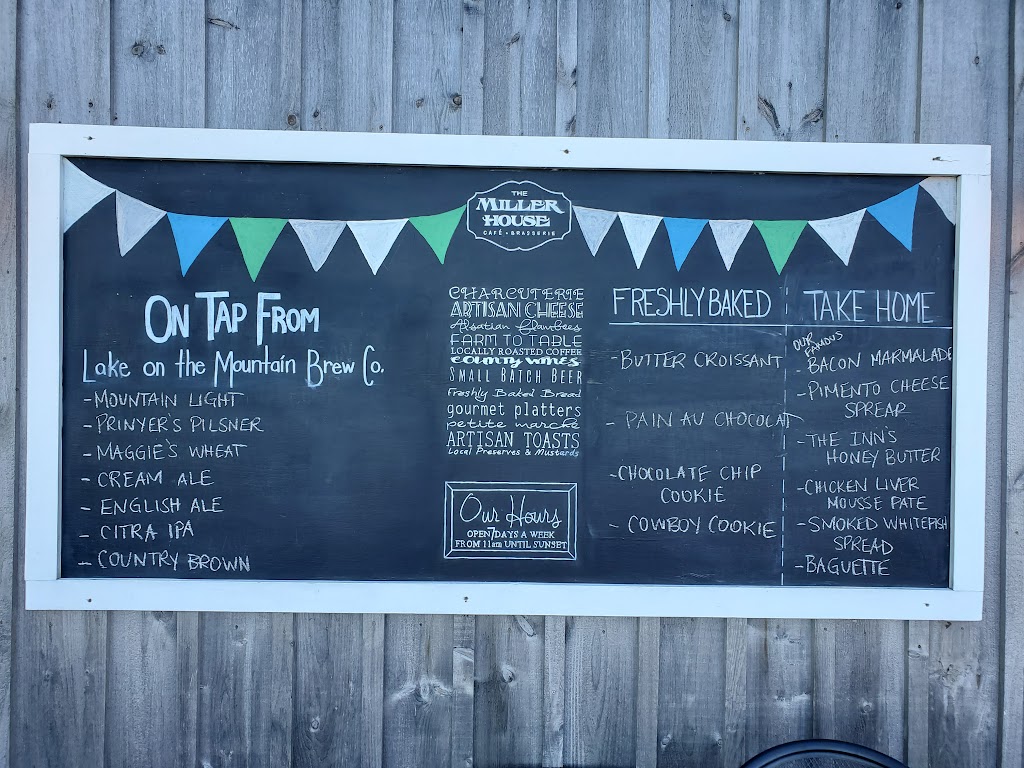 THE
MILLER
HOUSE
CAFÉ • BRASSERIE
ON TAP FROM
Lake on the Mountain Brew Co.
- MOUNTAIN LIGHT
- PRINYER'S PILSNER
- MAGGIE'S WHEAT
- CREAM ALE
- ENGLISH ALE
- CITRA IPA
- COUNTRY BROWN
CHARCUTERIE
ARTISAN CHEESE
Alsatian Flambees
FARM TO TABLE
LOCALLY ROASTED COFFEE
COUNTY WINES
SMALL BATCH BEER
Freshly Baked Bread
gourmet platters
petite marché
ARTISAN TOASTS
Local Preserves & Mustards
Our Hours
OPEN 7 DAYS A WEEK
FROM 11am UNTIL SUNSET
FRESHLY BAKED
- BUTTER CROISSANT
- PAIN AU CHOCOLAT
- CHOCOLATE CHIP
COOKIE
- COWBOY COOKIE
TAKE HOME
OUR
FAMOUS
- BACON MARMALADE
- PIMENTO CHEESE
SPREAD
- THE INN'S
HONEY BUTTER
- CHICKEN LIVER
MOUSSE PATE
- SMOKED WHITEFISH
SPREAD
- BAGUETTE